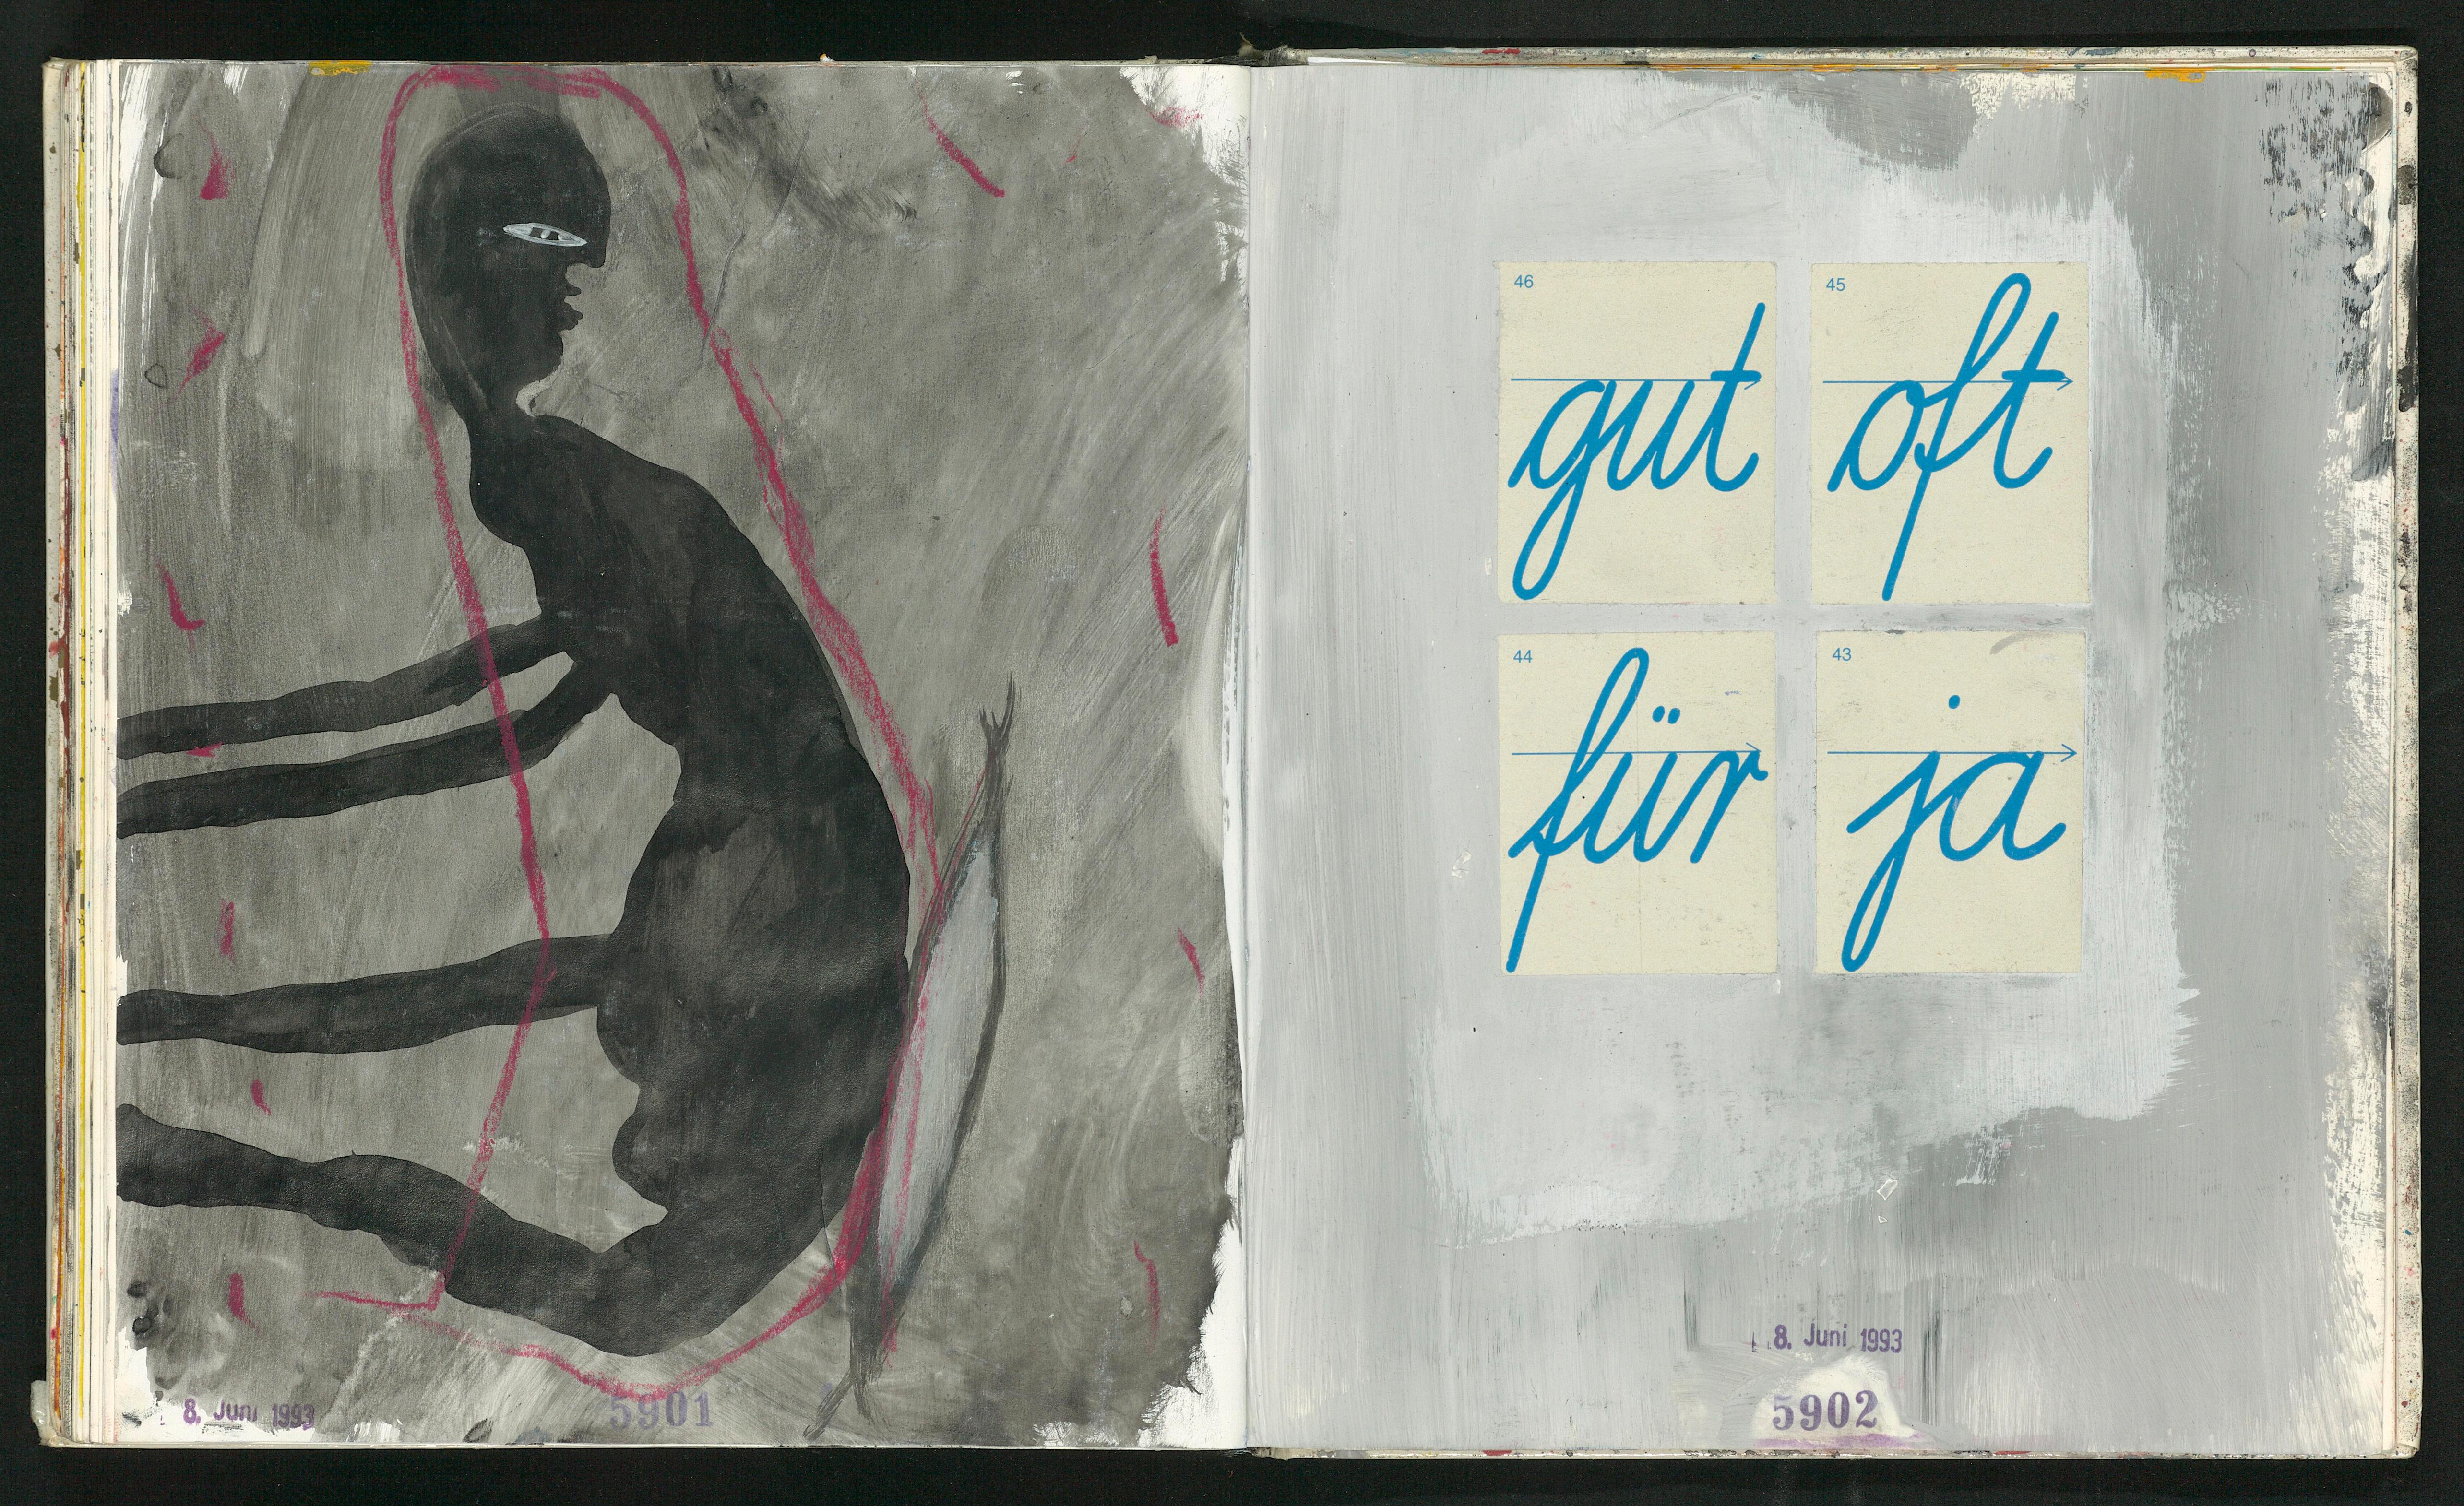 8. Juni 1993
5901
46
gut
45
oft
44
für
43
ja
8. Juni 1993
5902